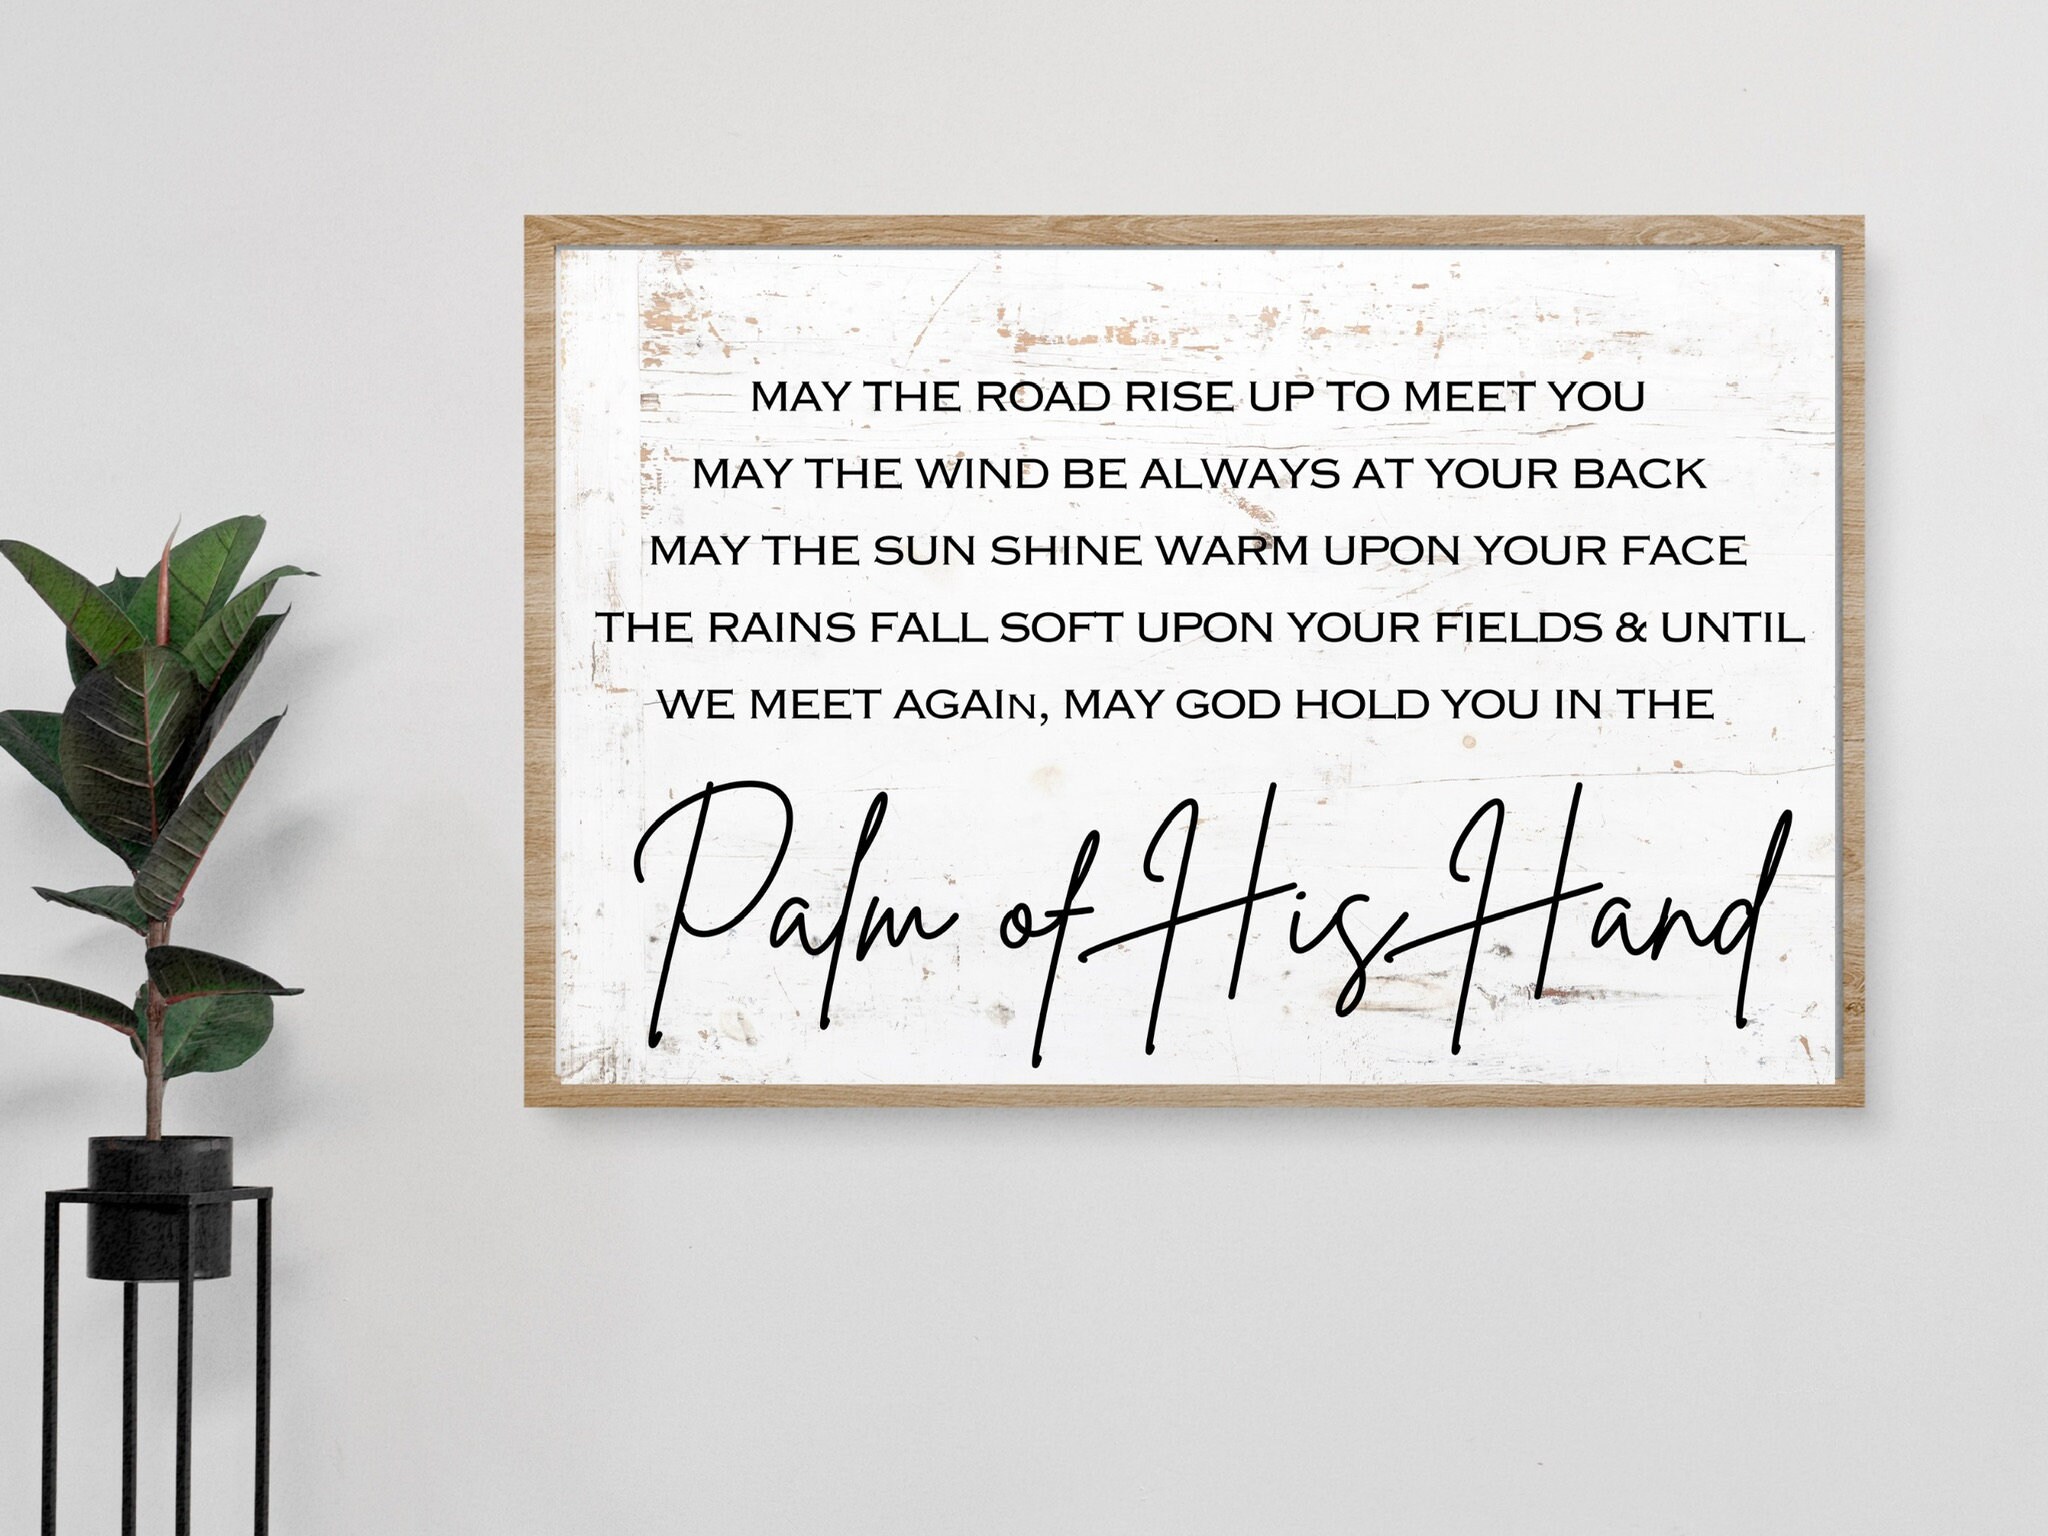 MAY THE ROAD RISE UP TO MEET YOU
MAY THE WIND BE ALWAYS AT YOUR BACK
MAY THE SUN SHINE WARM UPON YOUR FACE
THE RAINS FALL SOFT UPON YOUR FIELDS & UNTIL
WE MEET AGAIN, MAY GOD HOLD YOU IN THE
Palm of His Hand